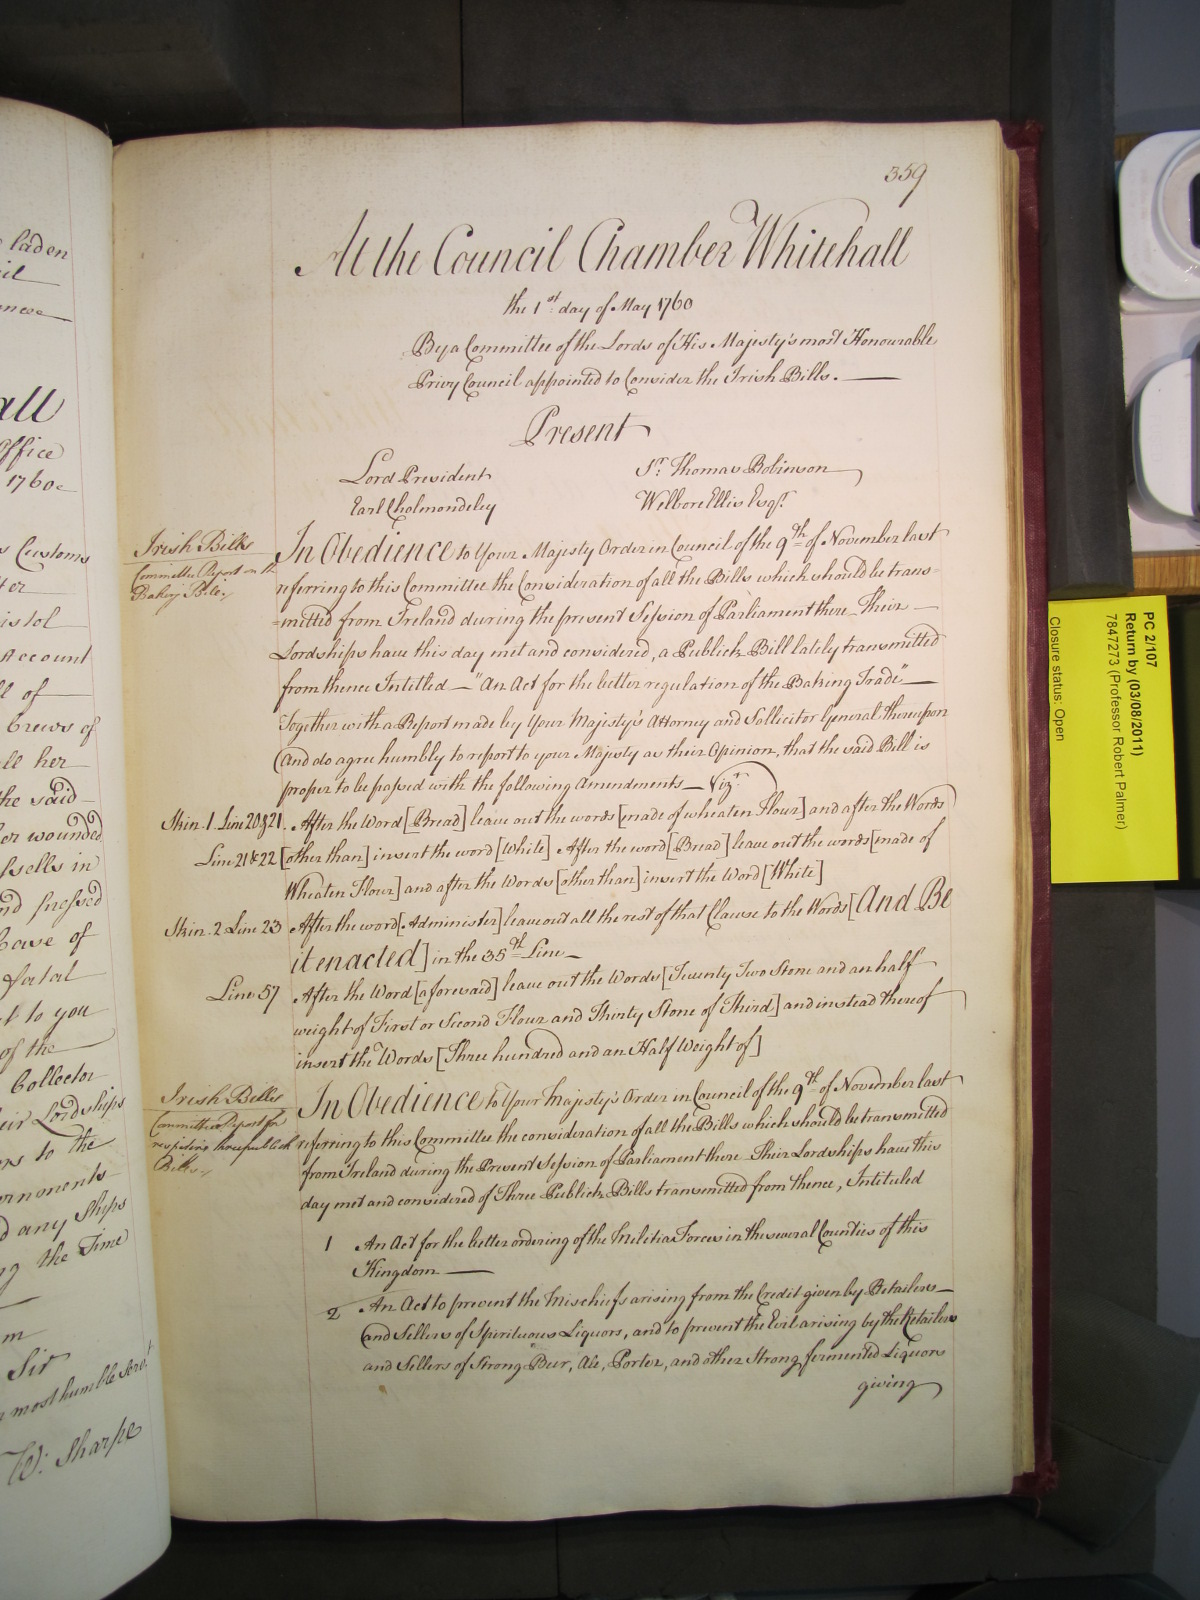 laden
359
At the Council Chamber Whitehall
the 1st day of May 1760
By a Committee of the Lords of His Majesty's most Honourable
Privy Council appointed to Consider the Irish Bills.
Present
Lord President
Sr. Thomas Robinson
Earl Cholmondeley
Welbore Ellis Esqr.
Irish Bills
Committee Report on the
Baking Bill
In Obedience to Your Majesty Order in Council of the 9th of November last
referring to this Committee the Consideration of all the Bills which should be trans=
=mitted from Ireland during the present Session of Parliament there Their
Lordships have this day met and considered, a Publick Bill lately transmitted
from thence Intitled — "An Act for the better regulation of the Baking Trade"
Together with a Report made by Your Majesty's Attorney and Sollicitor General thereupon
and do agree humbly to report to your Majesty as their Opinion, that the said Bill is
proper to be passed with the following Amendments — Vizt.
Skin. 1. Line 20 & 21. After the Word [Bread] leave out the words [made of wheaten Flour] and after the Words
Line 21 & 22 [other than] insert the word [White] After the word [Bread] leave out the words [made of
Wheaten Flour] and after the Words [other than] insert the Word [White]
Skin. 2 Line 23 After the word [Administer] leave out all the rest of that Clause to the Words [And Be
it enacted] in the 35th Line
Line 57 After the Word [aforesaid] leave out the Words [Twenty Two Stone and an half
weight of First or Second Flour and Thirty Stone of Third] and instead thereof
insert the Words [Three hundred and an Half Weight of]
Irish Bills
Committee Report for
three publick
Bills
In Obedience to Your Majesty's Order in Council of the 9th of November last
referring to this Committee the consideration of all the Bills which should be transmitted
from Ireland during the Present Session of Parliament there Their Lordships have this
day met and considered of Three Publick Bills transmitted from thence, Intituled
1 An Act for the better ordering of the Militia Forces in the several Counties of this
Kingdom
2 An Act to prevent the Mischiefs arising from the Credit given by Retailers
and Sellers of Spirituous Liquors, and to prevent the Evil arising by the Retailers
and Sellers of Strong Beer, Ale, Porter, and other Strong fermented Liquors
giving
Office
1760
Customs
Account
of
brews of
her
the said
wounded
in
pressed
of
fatal
to you
of the
Collector
their Lordships
to the
any Ships
the Time
Sir
most humble Servt.
W: Sharpe
PC 2/107
Return by (03/08/2011)
7847273 (Professor Robert Palmer)
Closure status: Open